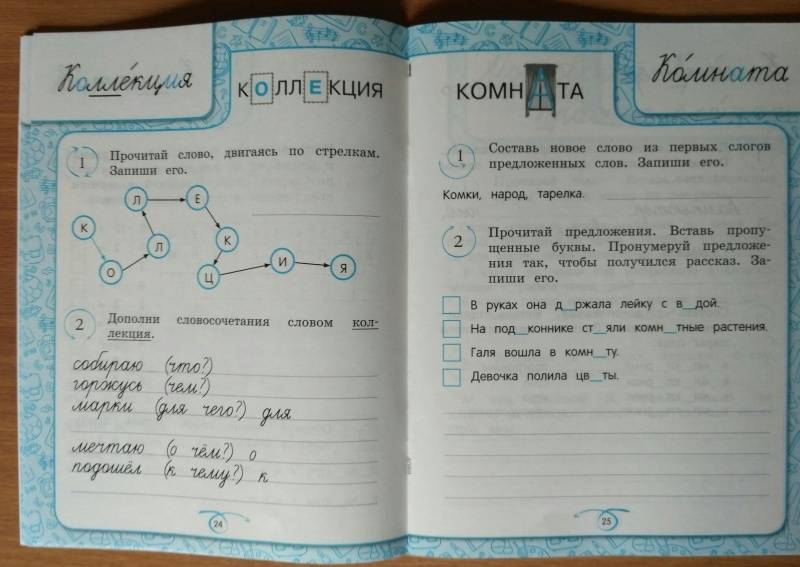 Колле́кция
КОЛЛЕКЦИЯ
1 Прочитай слово, двигаясь по стрелкам.
Запиши его.
К О Л Л Е К Ц И Я
2 Дополни словосочетания словом кол-
лекция.
собираю (что?)
горжусь (чем?)
марки (для чего?) для
мечтаю (о чём?) о
подошёл (к чему?) к
24
КОМНАТА
Ко́мната
1 Составь новое слово из первых слогов
предложенных слов. Запиши его.
Комки, народ, тарелка.
2 Прочитай предложения. Вставь пропу-
щенные буквы. Пронумеруй предложе-
ния так, чтобы получился рассказ. За-
пиши его.
В руках она д__ржала лейку с в__дой.
На под__коннике ст__яли комн__тные растения.
Галя вошла в комн__ту.
Девочка полила цв__ты.
25